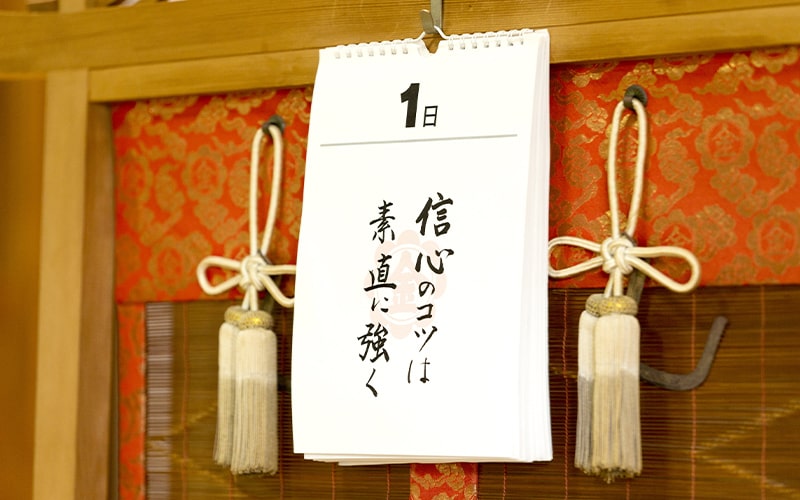 1日
信心のコツは
素直に強く